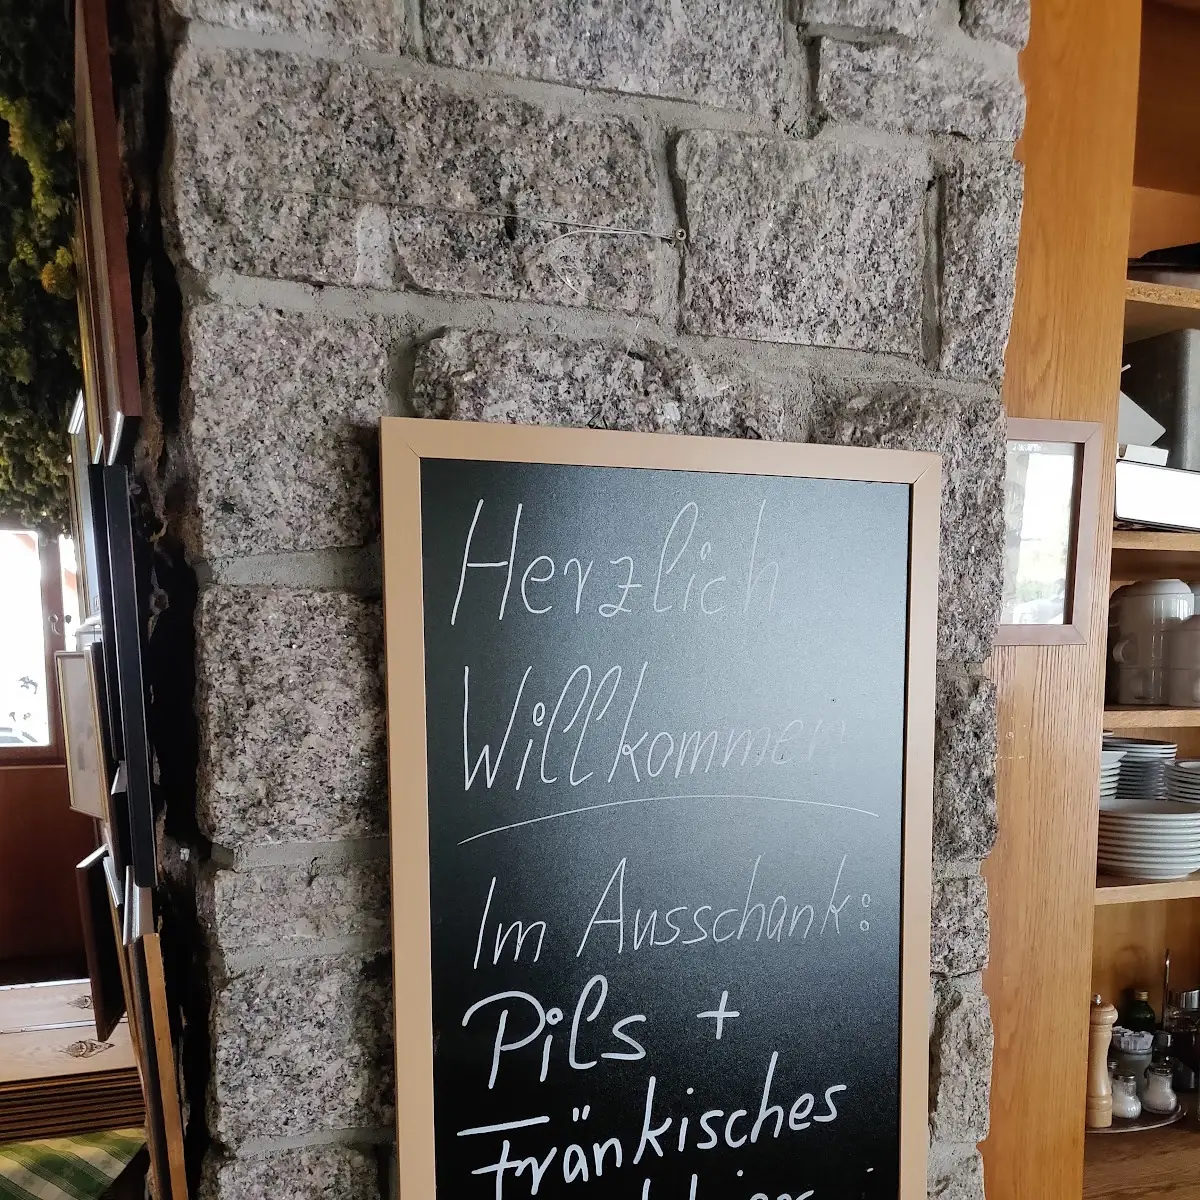 Herzlich
Willkommen
Im Ausschank:
Pils +
Fränkisches